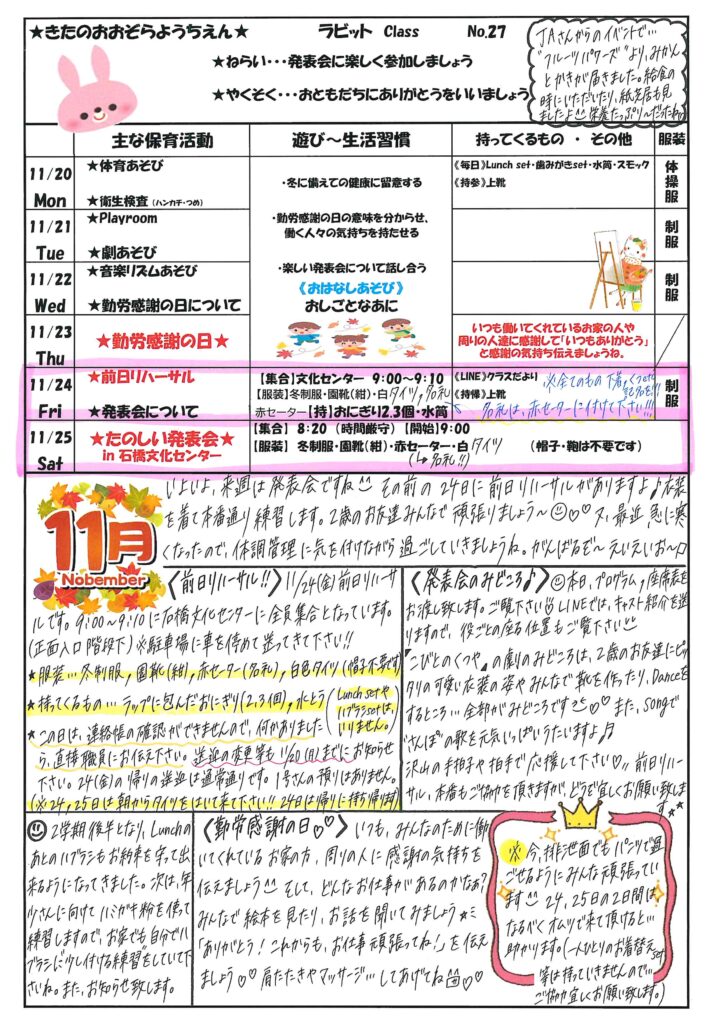 ★きたのおおぞらようちえん★ ラビット Class No.27
★ねらい・・・発表会に楽しく参加しましょう
★やくそく・・・おともだちにありがとうをいいましょう
JAさんからのイベントで…
"フルーツパワーズ"より、みかん
とかきが届きました。給食の
時にいただいたり、紙芝居も見
ましたよ 栄養たっぷり〜だったね。
主な保育活動 遊び〜生活習慣 持ってくるもの ・ その他 服装
11/20 Mon
★体育あそび
★衛生検査(ハンカチ・つめ)
・冬に備えての健康に留意する
《毎日》Lunch set・歯みがきset・水筒・スモック
《持参》上靴
体操服
11/21 Tue
★Playroom
★劇あそび
・勤労感謝の日の意味を分からせ、
働く人々の気持ちを持たせる
制服
11/22 Wed
★音楽リズムあそび
★勤労感謝の日について
・楽しい発表会について話し合う
《おはなしあそび》
おしごとなあに
制服
11/23 Thu
★勤労感謝の日★
いつも働いてくれているお家の人や
周りの人達に感謝して「いつもありがとう」
と感謝の気持ち伝えましょうね。
11/24 Fri
★前日リハーサル
★発表会について
【集合】文化センター 9:00〜9:10
【服装】冬制服・園靴(紺)・白タイツ,名札
赤セーター【持】おにぎり2.3個・水筒
《LINE》クラスだより
《持帰》上靴
※全てのもの 下着、くつ下に
記名を!!!
名札は、赤セーターに付けて下さい!!!
制服
11/25 Sat
★たのしい発表会★
in 石橋文化センター
【集合】 8:20 (時間厳守) 【開始】9:00
【服装】 冬制服・園靴(紺)・赤セーター・白タイツ (帽子・鞄は不要です)
(↳名札!!)
11月
Nobember
いよいよ、来週は発表会ですね その前の24日に前日リハーサルがありますよ♪衣装
を着て本番通り練習します。2歳のお友達みんなで頑張りましょう〜♡♡ 又、最近急に寒
くなったので、体調管理に気を付けながら過ごしていきましょうね。がんばるぞ〜えいえいお〜
〈前日リハーサル!!〉11/24(金)前日リハーサ
ルです。9:00〜9:10に石橋文化センターに全員集合となっています。
(正面入口階段下)※駐車場に車を停めて送ってきて下さい!!
★服装…冬制服,園靴(紺),赤セーター(名札),白色タイツ(帽子不要です)
★持ってくるもの…ラップに包んだおにぎり(2,3個),水とう(Lunch setや
ハブラシsetは、
いりません。)
★この日は、連絡帳の確認ができませんので、何かありました
ら、直接職員にお伝え下さい。送迎の変更等も11/20(月)までにお知らせ
下さい。24(金)の帰りの送迎は通常通りです。1号さんの預りはありません。
(※24,25日は朝からタイツをはいて来て下さい!! 24日は帰りに持ち帰ります)
〈発表会のみどころ♪〉本日、プログラム,座席表を
お渡し致します。ご覧下さい LINEでは、キャスト紹介を送
りますので、役ごとの座る位置もご覧下さい
『こびとのくつや』の劇のみどころは、2歳のお友達にピッ
タリの可愛い衣装の姿やみんなで靴を作ったり、Danceを
するところ…全部がみどころです♡♡ また、songで
"さんぽ"の歌を元気いっぱいうたいますよ♪
沢山の手拍子や拍手で応援して下さい♡ 前日リハー
サル、本番もご協力を頂きますが、どうぞ宜しくお願い致します★★
2学期後半となり、Lunchの
あとのハブラシもお約束を守って出
来るようになってきました。次は、年
少さんに向けてハミガキ粉を使って
練習しますので、お家でも自分でハ
ブラシに"少し付ける練習"をしていて下
さいね。また、お知らせ致します。
〈勤労感謝の日♡♡〉いつも、みんなのために働
いてくれているお家の方、周りの人に感謝の気持ちを
伝えましょう そして、どんなお仕事があるのかなぁ?
みんなで絵本を見たり、お話を聞いてみましょう
「ありがとう!これからも、お仕事頑張ってね!」を伝え
ましょう♡♡ 肩たたきやマッサージ…してあげてね♡♡
※今、排泄面でもパンツで過
ごせるようにみんな頑張ってい
ます 24,25日の2日間は
なるべくオムツで来て頂けると…
助かります。(一人ひとりのお着替えset
等は持っていきませんので…
ご協力宜しくお願い致します。)